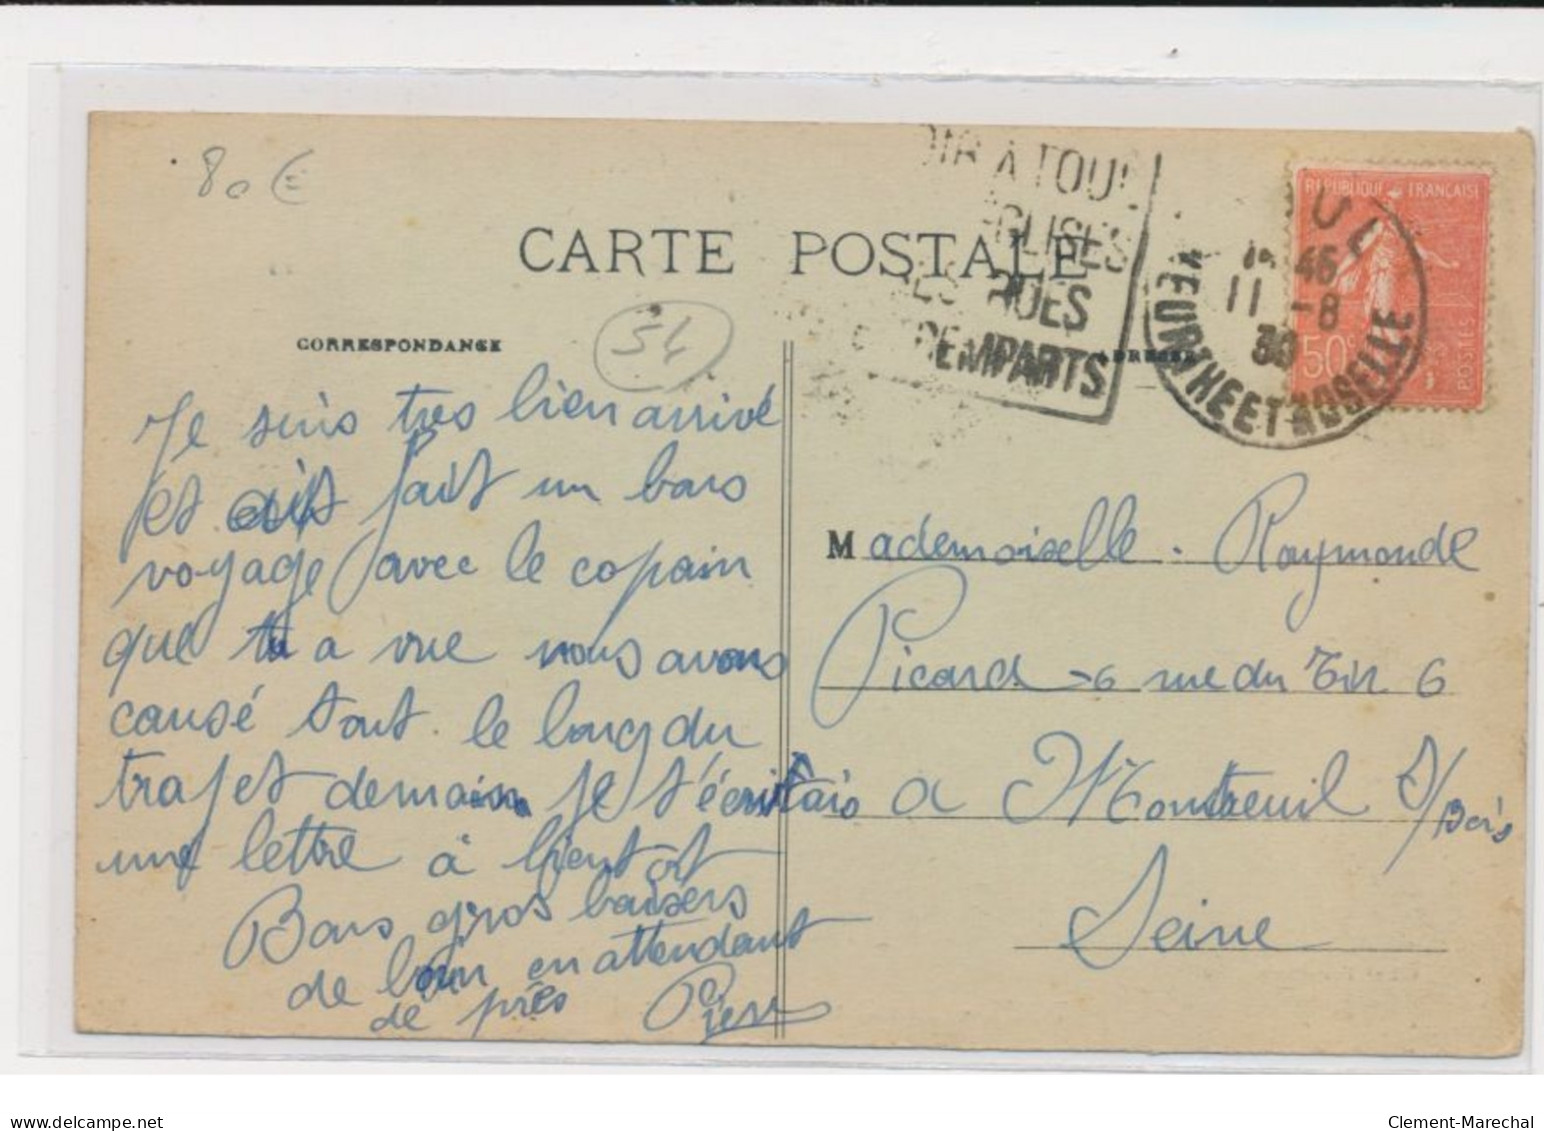 80 €
OIR À TOUL
EGLISES
RUES
REMPARTS
REPUBLIQUE FRANÇAISE
50c
POSTES
UL
45
11 -8
30
MEURTHE ET MOSELLE
CARTE POSTALE
54
CORRESPONDANCE
ADRESSE
Je suis tres bien arrivé
et ait fait un bons
voyage avec le copain
que tu a vue nous avons
causé tout le long du
trajet demain je t'écritais
une lettre à bientot
Bons gros baisers
de loin en attendant
de près
Pierr
Mademoiselle. Raymonde
Picard - 6 rue du Tir 6
a Montreuil S/Bois
Seine
delcampe.net
Clement-Marechal